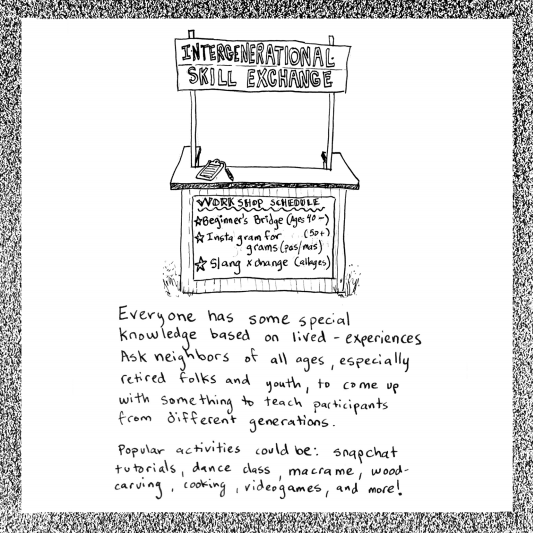 INTERGENERATIONAL
SKILL EXCHANGE
WORKSHOP SCHEDULE
☆Beginner's Bridge (Ages 40-)
☆Instagram for (50+)
grams (pas/mas)
☆ Slang xchange (all ages)
Everyone has some special
knowledge based on lived-experiences
Ask neighbors of all ages, especially
retired folks and youth, to come up
with something to teach participants
from different generations.
Popular activities could be: snapchat
tutorials, dance class, macrame, wood-
carving, cooking, videogames, and more!